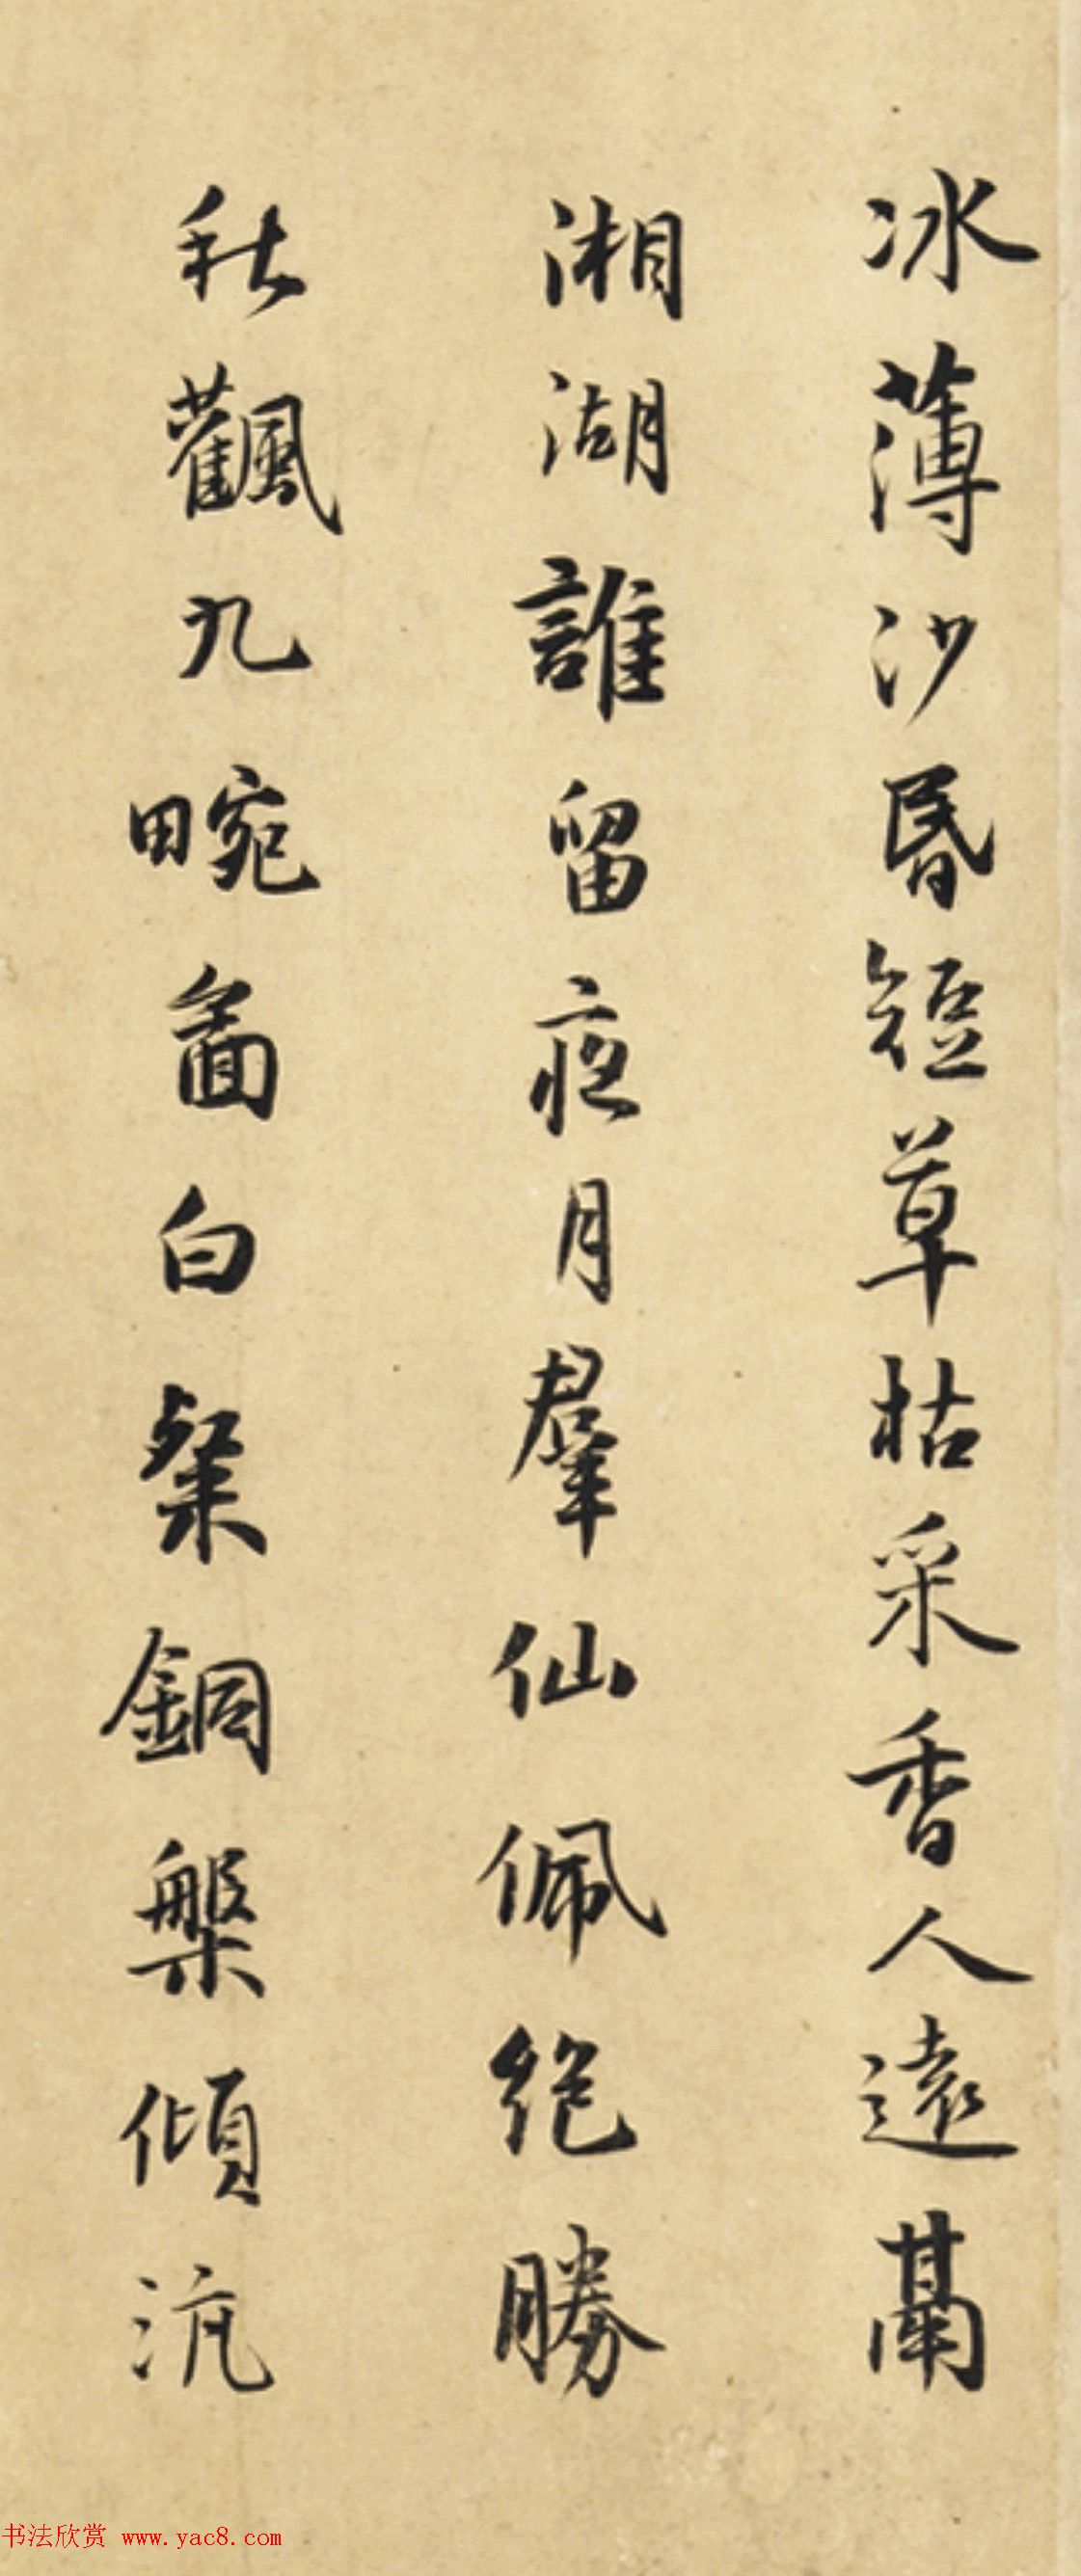 冰薄沙昏短草枯采香人遠鬲
湘湖誰留夜月羣仙佩絶勝
秋飌九畹啚白粲銅槃傾沆
书法欣赏 www.yac8.com